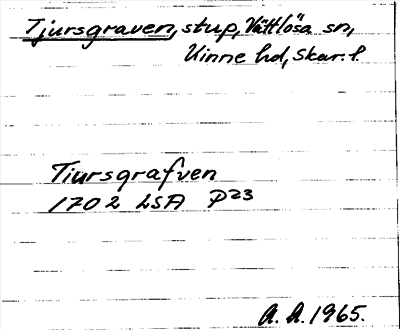 Tjursgraven, stup, Vättlösa sn,
Kinne hd, Skar. l.
Tiursgrafven
1702 LSA P23
A. A. 1965.